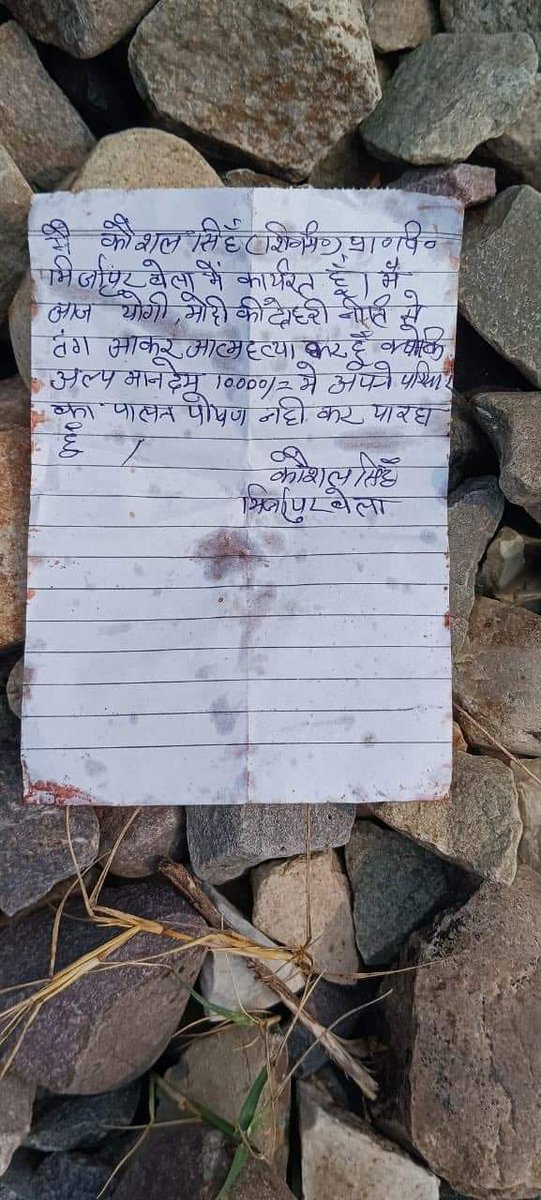 मै कौशल सिहँ (शि०मि०) प्रा०वि०
मिर्जापुर बेला मैं कार्यरत हूँ। मैं
आज योगी, मोदी की दोहरी नीति से
तंग आकर आत्महत्या कर हूँ क्योकि
अल्प मानदेय 10000/= मे अपने परिवार
का पालन पोषण नही कर पारहा
हूँ ।
कौशल सिहँ
मिर्जापुर बेला